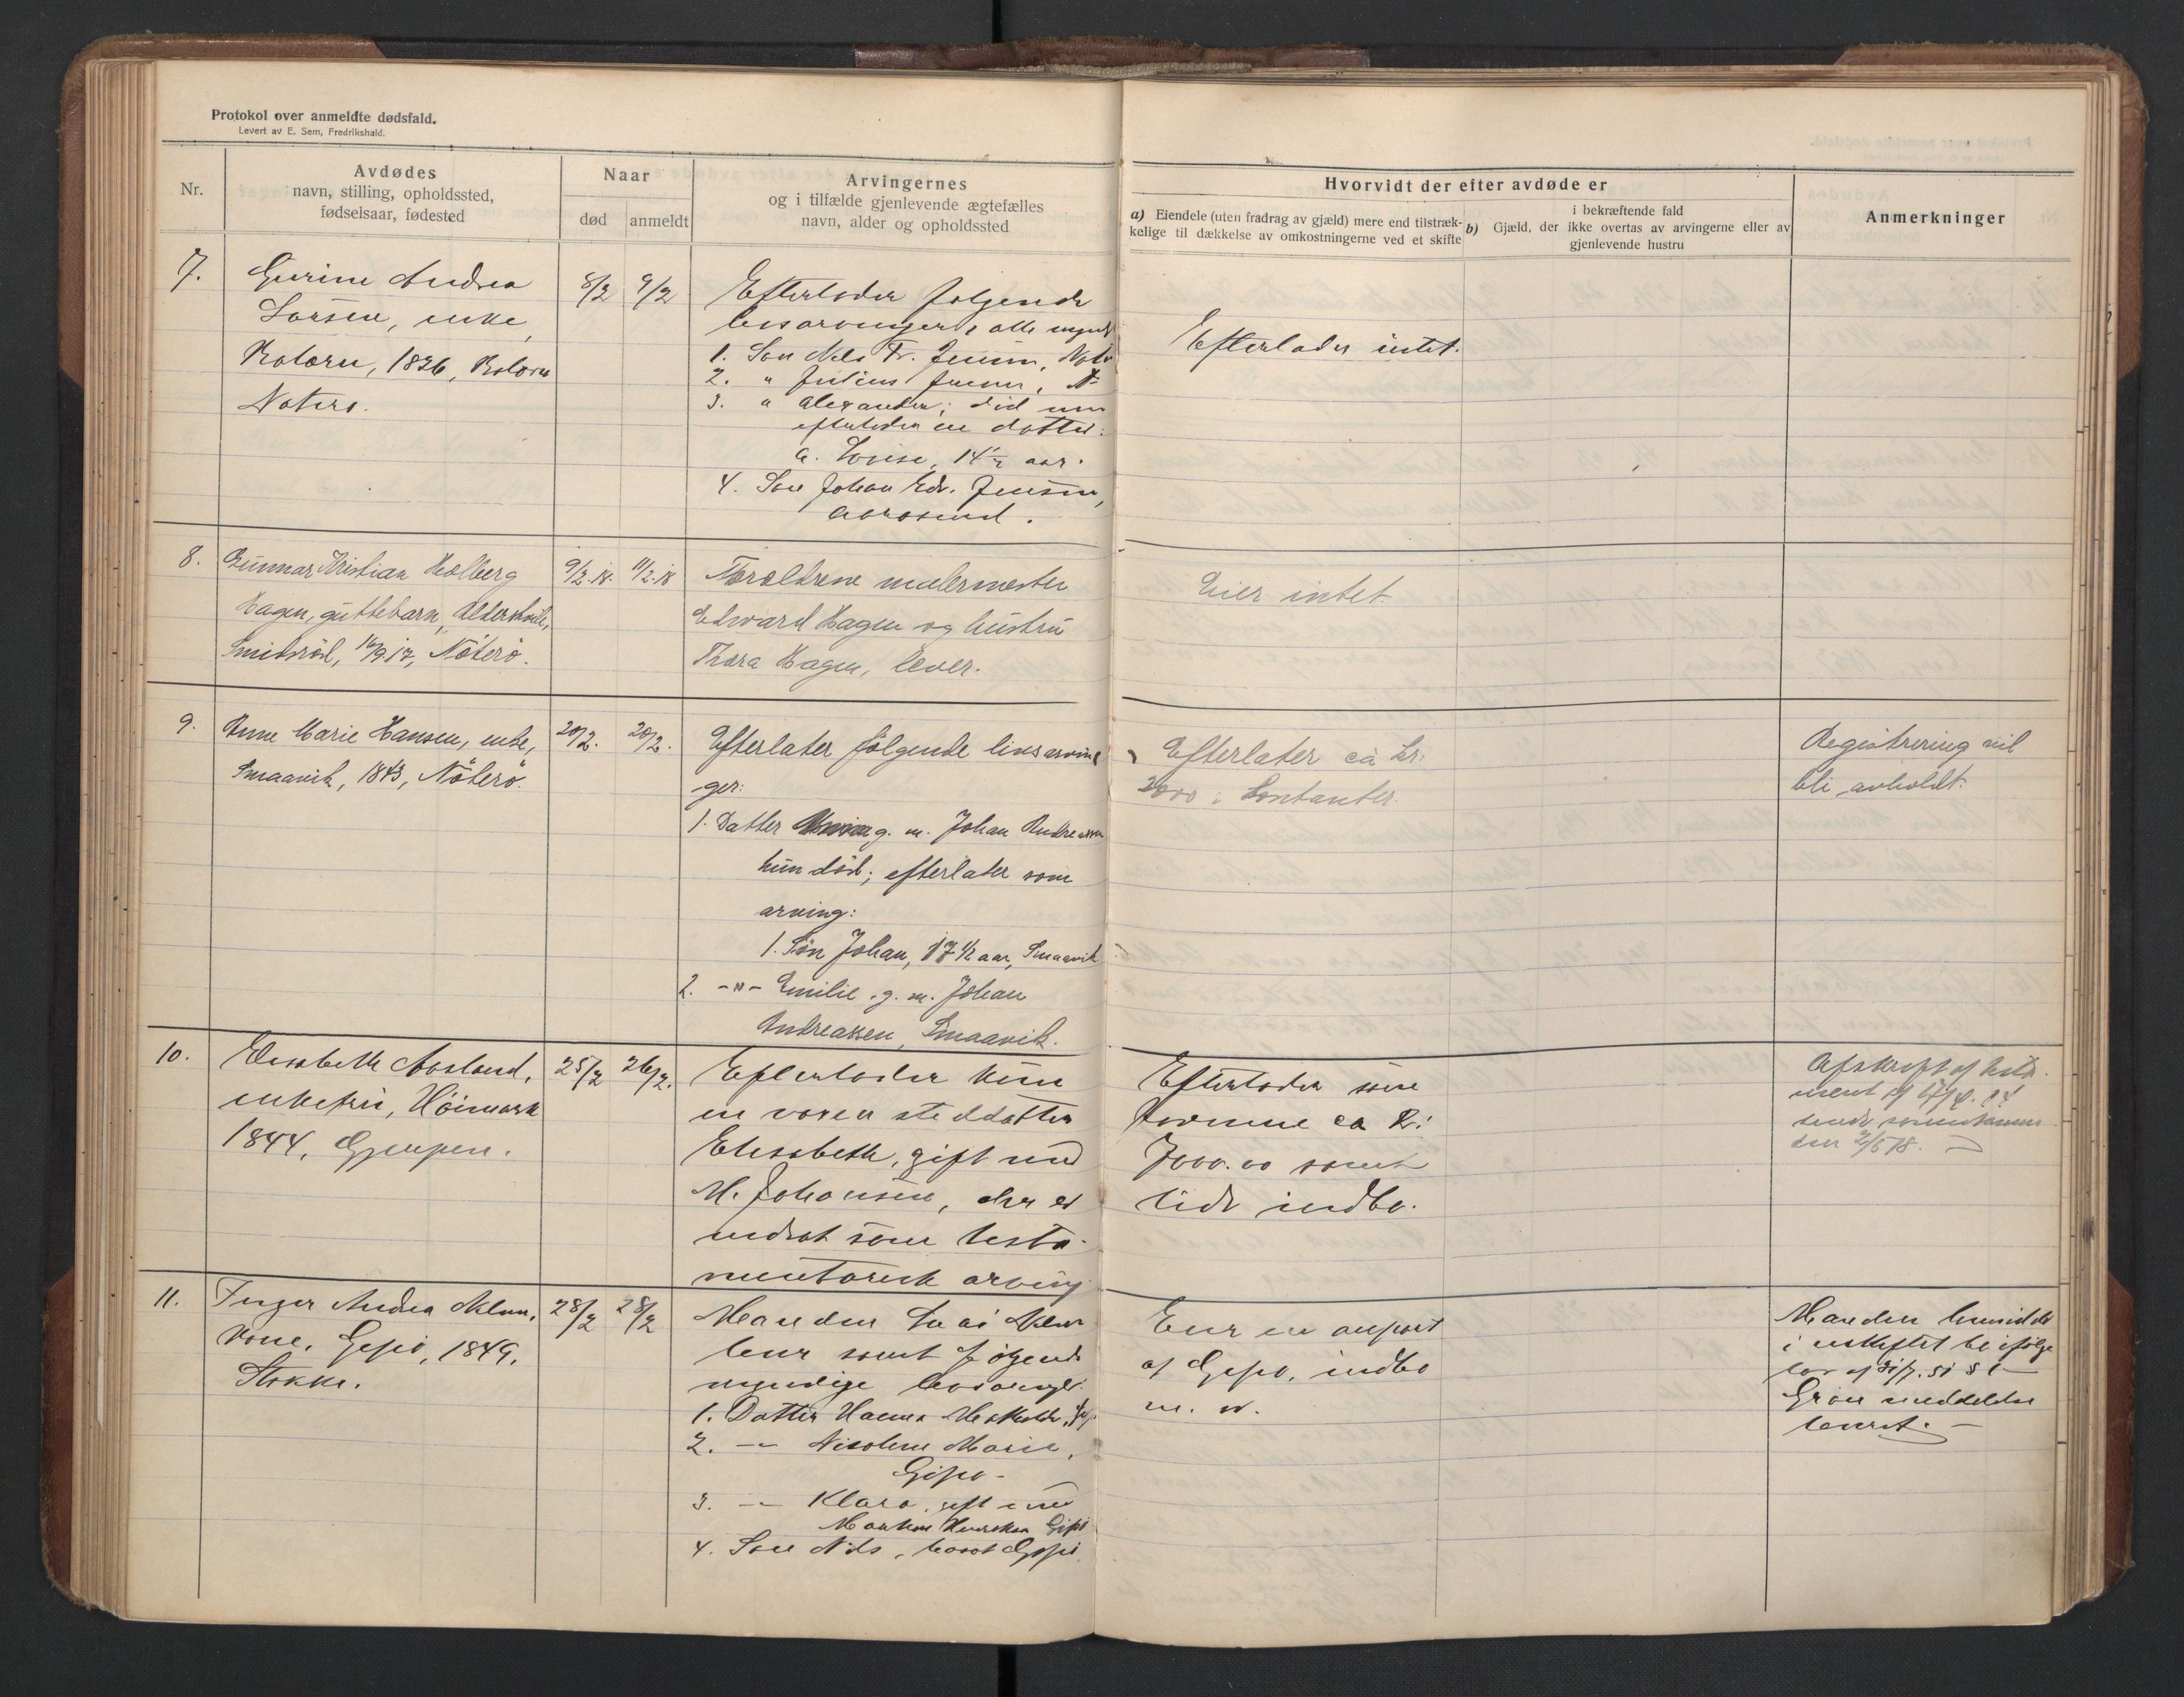 Protokol over anmeldte dødsfald.
Levert av E. Sem, Fredrikshald.
Nr.
Avdødes
navn, stilling, opholdssted,
fødselsaar, fødested
Naar
død
anmeldt
Arvingernes
og i tilfælde gjenlevende ægtefælles
navn, alder og opholdssted
Hvorvidt der efter avdøde er
a) Eiendele (uten fradrag av gjæld) mere end tilstræk-
kelige til dækkelse av omkostningerne ved et skifte
b) Gjæld, der
i bekræftende fald
ikke overtas av arvingerne eller av
gjenlevende hustru
Anmerkninger
7.
Gurine Andrea
enke,
1826,
Nøterø.
8/2
9/2
Efterlader følgende
livsarvinger, alle
1. Søn Nils Fr. Jensen,
2. " Julius Jensen,
3. " Alexander; død
efterlader en datter:
a. Lovise, 14 1/2 aar.
4. Søn Johan Edv. Jensen,
Aarøsund.
Efterlader intet.
8.
Gunnar Kristian Holberg
Hagen, guttebarn,
Smidsrød, 16/9.17, Nøterø.
9/2.18.
11/2.18
Forældrene malermester
Edward Hagen og hustru
Thora Hagen, lever.
Eier intet.
9.
Anne Marie Hansen, enke,
Smaavik, 1843, Nøterø.
20/2.
20/2.
Efterlater følgende livsarvin
ger:
1. Datter g. m. Johan Andreassen
hun død; efterlater som
arving:
1. Søn Johan, 17 1/2 aar, Smaavik
2. -"- Emilie g. m. Johan
Andreassen, Smaavik.
Efterlater ca kr.
2000 i kontanter.
Registrering vil
bli avholdt.
10.
Elisabeth Aasland,
enkefru,
1844, Gjerpen.
25/2
26/2.
Efterlader kun
en voxen steddatter
Elisabeth, gift med
M. Johansen, der er
indsat som testa-
mentarisk arving
Efterlader som
formue ca kr.
7000.00 samt
lidt indbo.
Afskrift af testa
ment af
den 2/5 18.
11.
Inger Andrea
kone, Gipø, 1849,
Stokke.
28/2
28/2
Manden
lever samt følgende
myndige livsarvger:
1. Datter Hanna
2. -"- Nicoline Marie,
Gipø
3. -"- Klara, gift med
Gipø
4. Søn Nils,
Eier en anpart
af Gipø, indbo
m. v.
Manden hensidder
i uskiftet bo ifølge
lov af 31/7.51 § 1
meddelelse